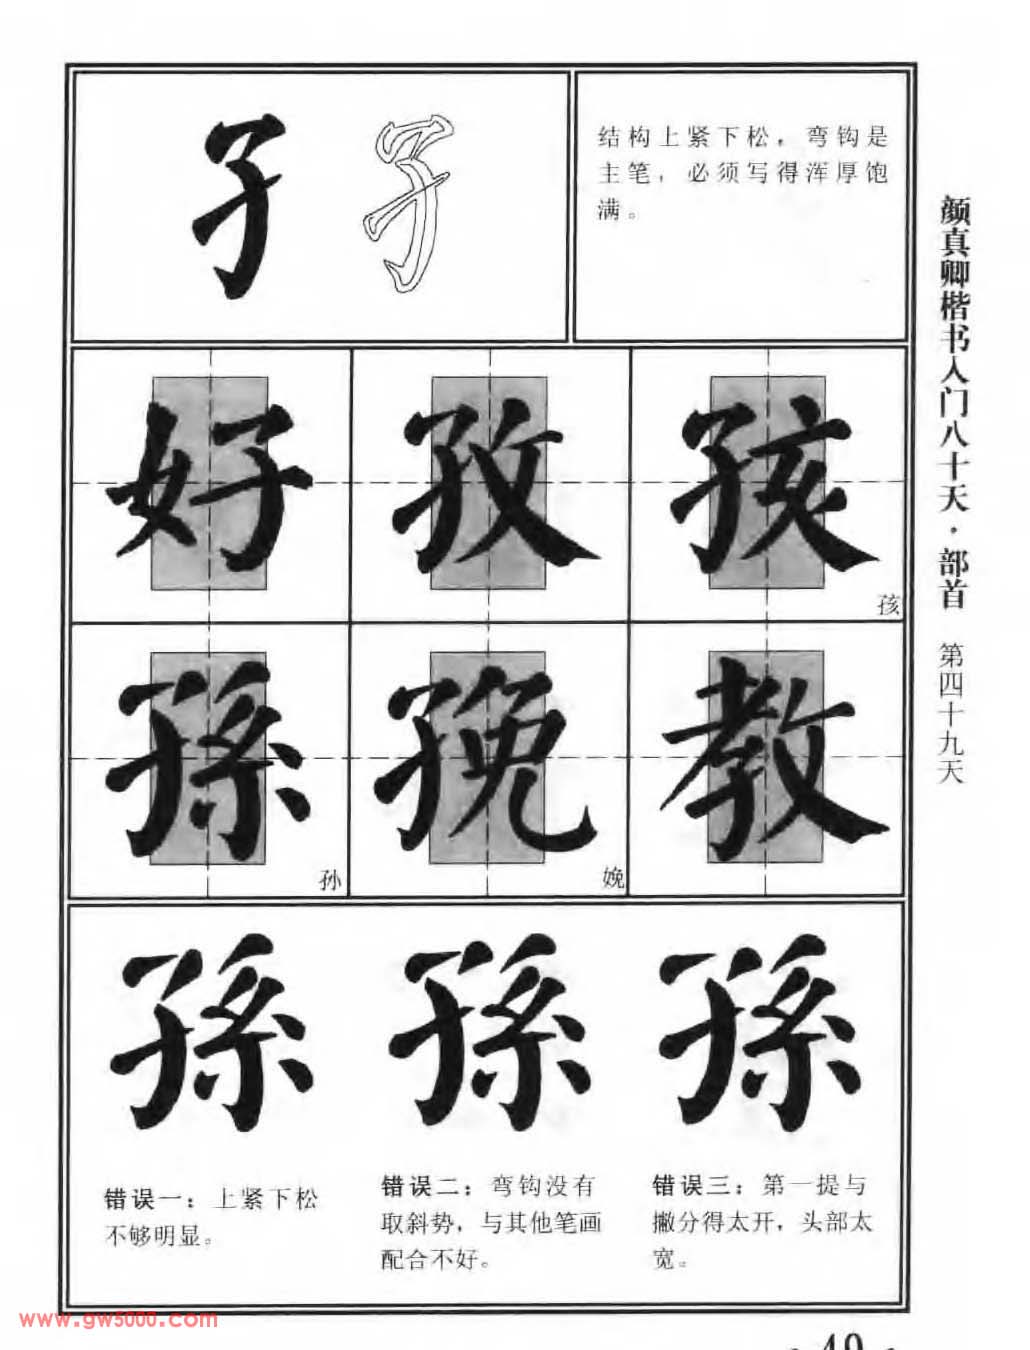 子 子
结构上紧下松，弯钩是
主笔，必须写得浑厚饱
满。
好 孜 孩
孩
孫 㝃 教
孙 娩
孫 孫 孫
错误一：上紧下松
不够明显。
错误二：弯钩没有
取斜势，与其他笔画
配合不好。
错误三：第一提与
撇分得太开，头部太
宽。
颜真卿楷书入门八十天·部首 第四十九天
www.gw5000.com
- 49 -